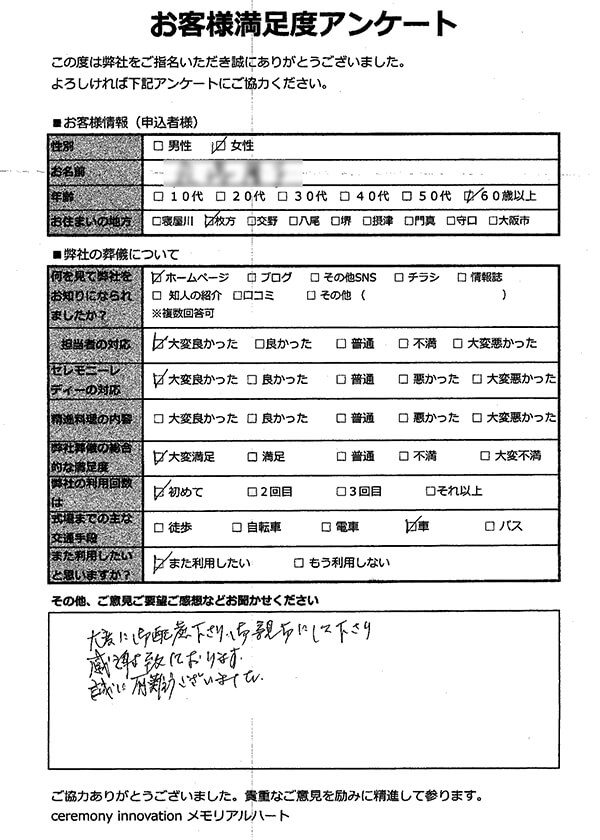 お客様満足度アンケート
この度は弊社をご指名いただき誠にありがとうございました。
よろしければ下記アンケートにご協力ください。
■お客様情報（申込者様）
性別 □ 男性 ☑ 女性
お名前
年齢 □ 10代 □ 20代 □ 30代 □ 40代 □ 50代 ☑ 60歳以上
お住まいの地方 □寝屋川 ☑枚方 □交野 □八尾 □堺 □摂津 □門真 □守口 □大阪市
■弊社の葬儀について
何を見て弊社をお知りになられましたか？ ☑ ホームページ □ ブログ □ その他SNS □ チラシ □ 情報誌
□ 知人の紹介 □口コミ □ その他（ ）
※複数回答可
担当者の対応 ☑大変良かった □良かった □ 普通 □ 不満 □ 大変悪かった
セレモニーレディーの対応 ☑大変良かった □ 良かった □ 普通 □ 悪かった □ 大変悪かった
精進料理の内容 □ 大変良かった □ 良かった □ 普通 □ 悪かった □ 大変悪かった
弊社葬儀の総合的な満足度 ☑大変満足 □ 満足 □ 普通 □ 不満 □ 大変不満
弊社の利用回数は ☑初めて □２回目 □３回目 □それ以上
式場までの主な交通手段 □ 徒歩 □ 自転車 □ 電車 ☑車 □ バス
また利用したいと思いますか？ ☑また利用したい □ もう利用しない
その他、ご意見ご要望ご感想などお聞かせください
大変に御配慮下さり、御親切にして下さり
感謝致しております。
誠に有難うございました。
ご協力ありがとうございました。貴重なご意見を励みに精進して参ります。
ceremony innovation メモリアルハート